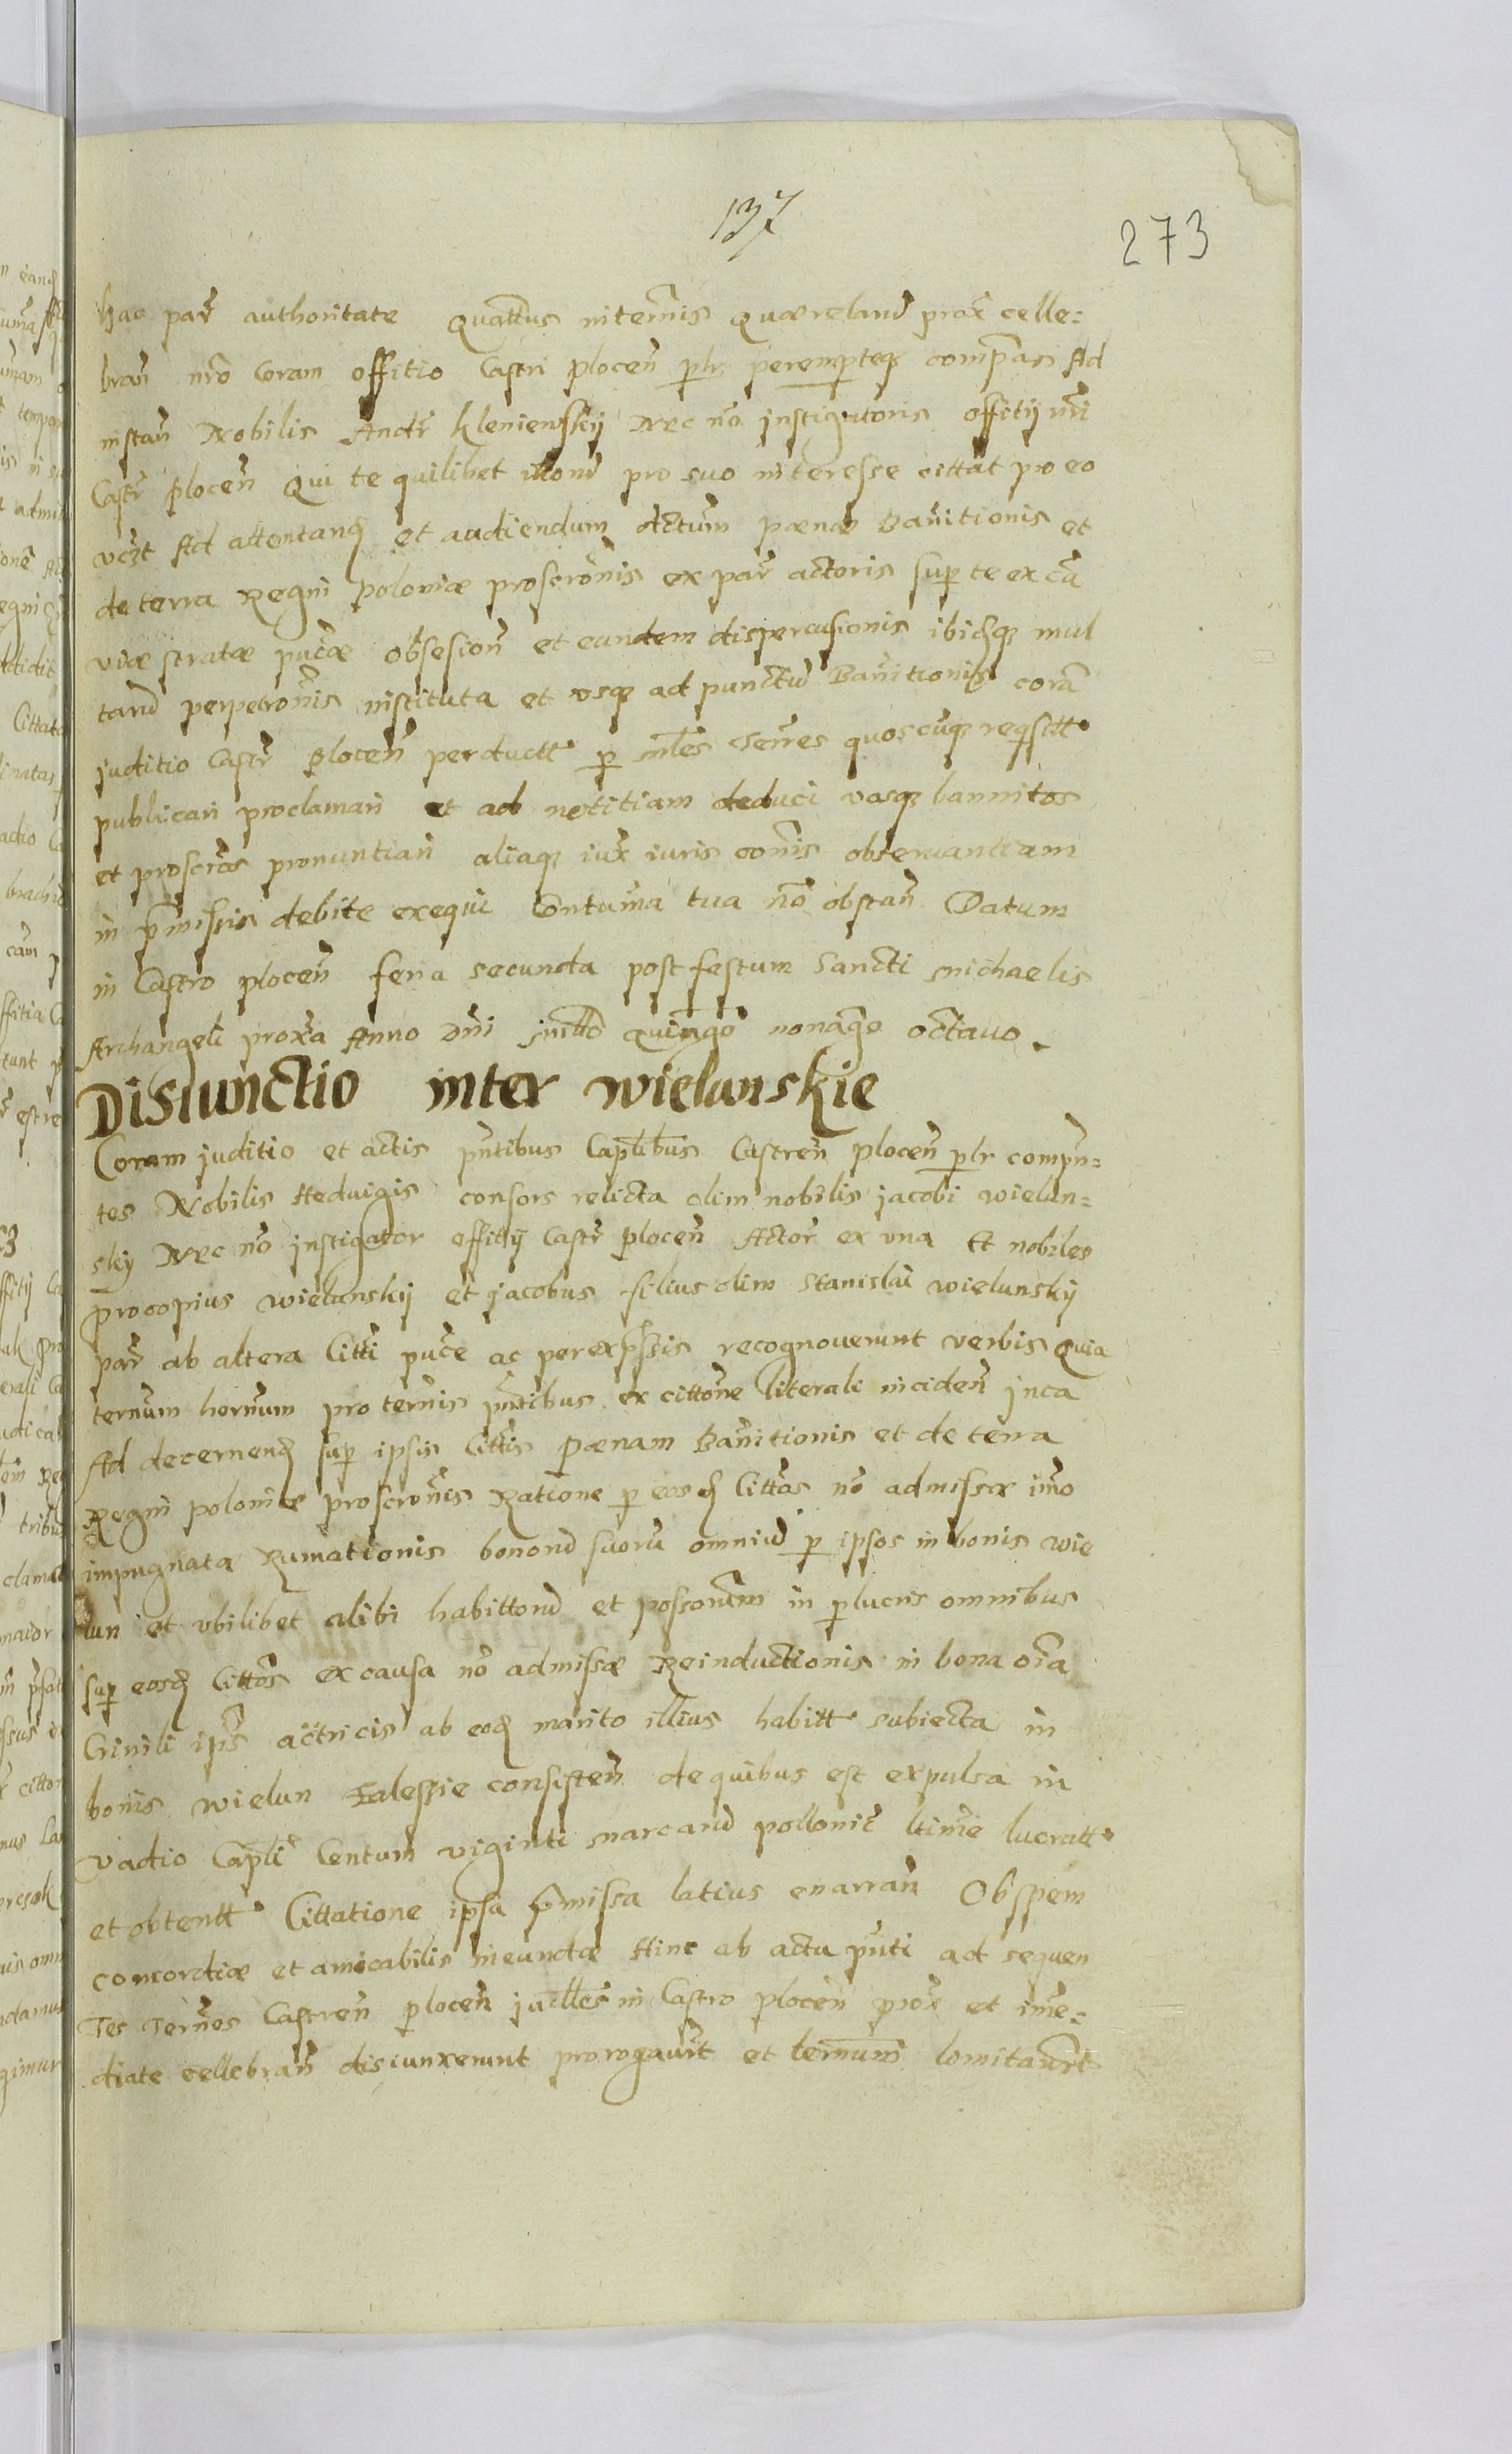 137
273
hac par̄ authoritate Quattūs in termīs Quærelarū prox̄ celle=
brān nrō Coram offitio Castri plocen̄ plr̄ peremptęq3 compāas Ad
instan̄ Nobilis Andr̄ Klenienskij Nec nō instigatoris offitij nr̄i
Castr̄ plocen̄ Qui te quilibet illorū pro suo interesse cittat pro eo
vc3t Ad attentand̄ et audiendum dctūm pænæ Banitionis et
de terra Regni poloniæ proscrōnis ex par̄ actoris sup te ex cā
viæ stratæ pucæ obsesion̄ et eundem dispercusionis ibid̄q3 mul
tarū perpetrōnis instituta et vsq3 ad punctū Banitionis corā
juditio Castr̄ plocen̄ perductt̄ p mles terr̄es quoscūq3 reqsitt̄
publicari proclamari et ad notitiam deduci vosq3 bannitos
et proscrōs pronuntiari aliaq3 iux̄ iuris cōnis obseruantiam
in p̄missis debite exequi Contumā tua nō obstan̄ Datum
in Castro plocen̄ feria secunda post festum Sancti Michaelis
Archangeli proxa Anno Dn̄i Millō Quingō nonāgo octauo.
Disiunctio inter wielunskie
Coram juditio et actis pn̄tibus Caplibus Castren̄ plocen̄ plr̄ compn̄=
tes Nobilis Heduigis consors relicta olim nobilis jacobi wielun=
skij Nec nō instigator offitij Castr̄ plocen̄ Actor̄ ex vna Et nobiles
procopius wielunskij et jacobus filius olim Stanislai wielunskij
par̄ ab altera Citti pucē ac per exp̄ssis recognouerunt verbis Quia
ternūm hornūm pro termīs pn̄tibus ex cittōne literali inciden̄ in ca
Ad decernend̄ sup ipsis Cittīs pænam Banitionis et de terra
Regni poloniæ proscrōnis Ratione p eosd̄ Cittōs nō admissæ imo
impugnatæ Rumationis bonorū suorū omniū p ipsos in bonis wie
lun et vbilibet alibi habittorū et possorūm in p lucris omnibus
sup eosd̄ Cittōs ex causa nō admissæ Reinductionis in bona oīa
Crinili ips̄ actricis ab eod̄ marito illius habitt̄ subiecta in
bonis wielun Zalessie consisten̄ de quibus est expulsa in
vadio Caplī Centum viginti marcarū pollonic̄ ltime lucratt̄
et obtentt̄ Cittatione ipsa p̄missa latius enarran̄ Ob spem
concordiæ et amicabilis ineundæ Hinc ab actu pn̄ti ad sequen
Tes Termēs Castren̄ plocen̄ juclles in Castro plocen̄ prox̄ et imē=
diate cellebran̄ disiunxerunt prorogauīt et termīnum lomitauīt